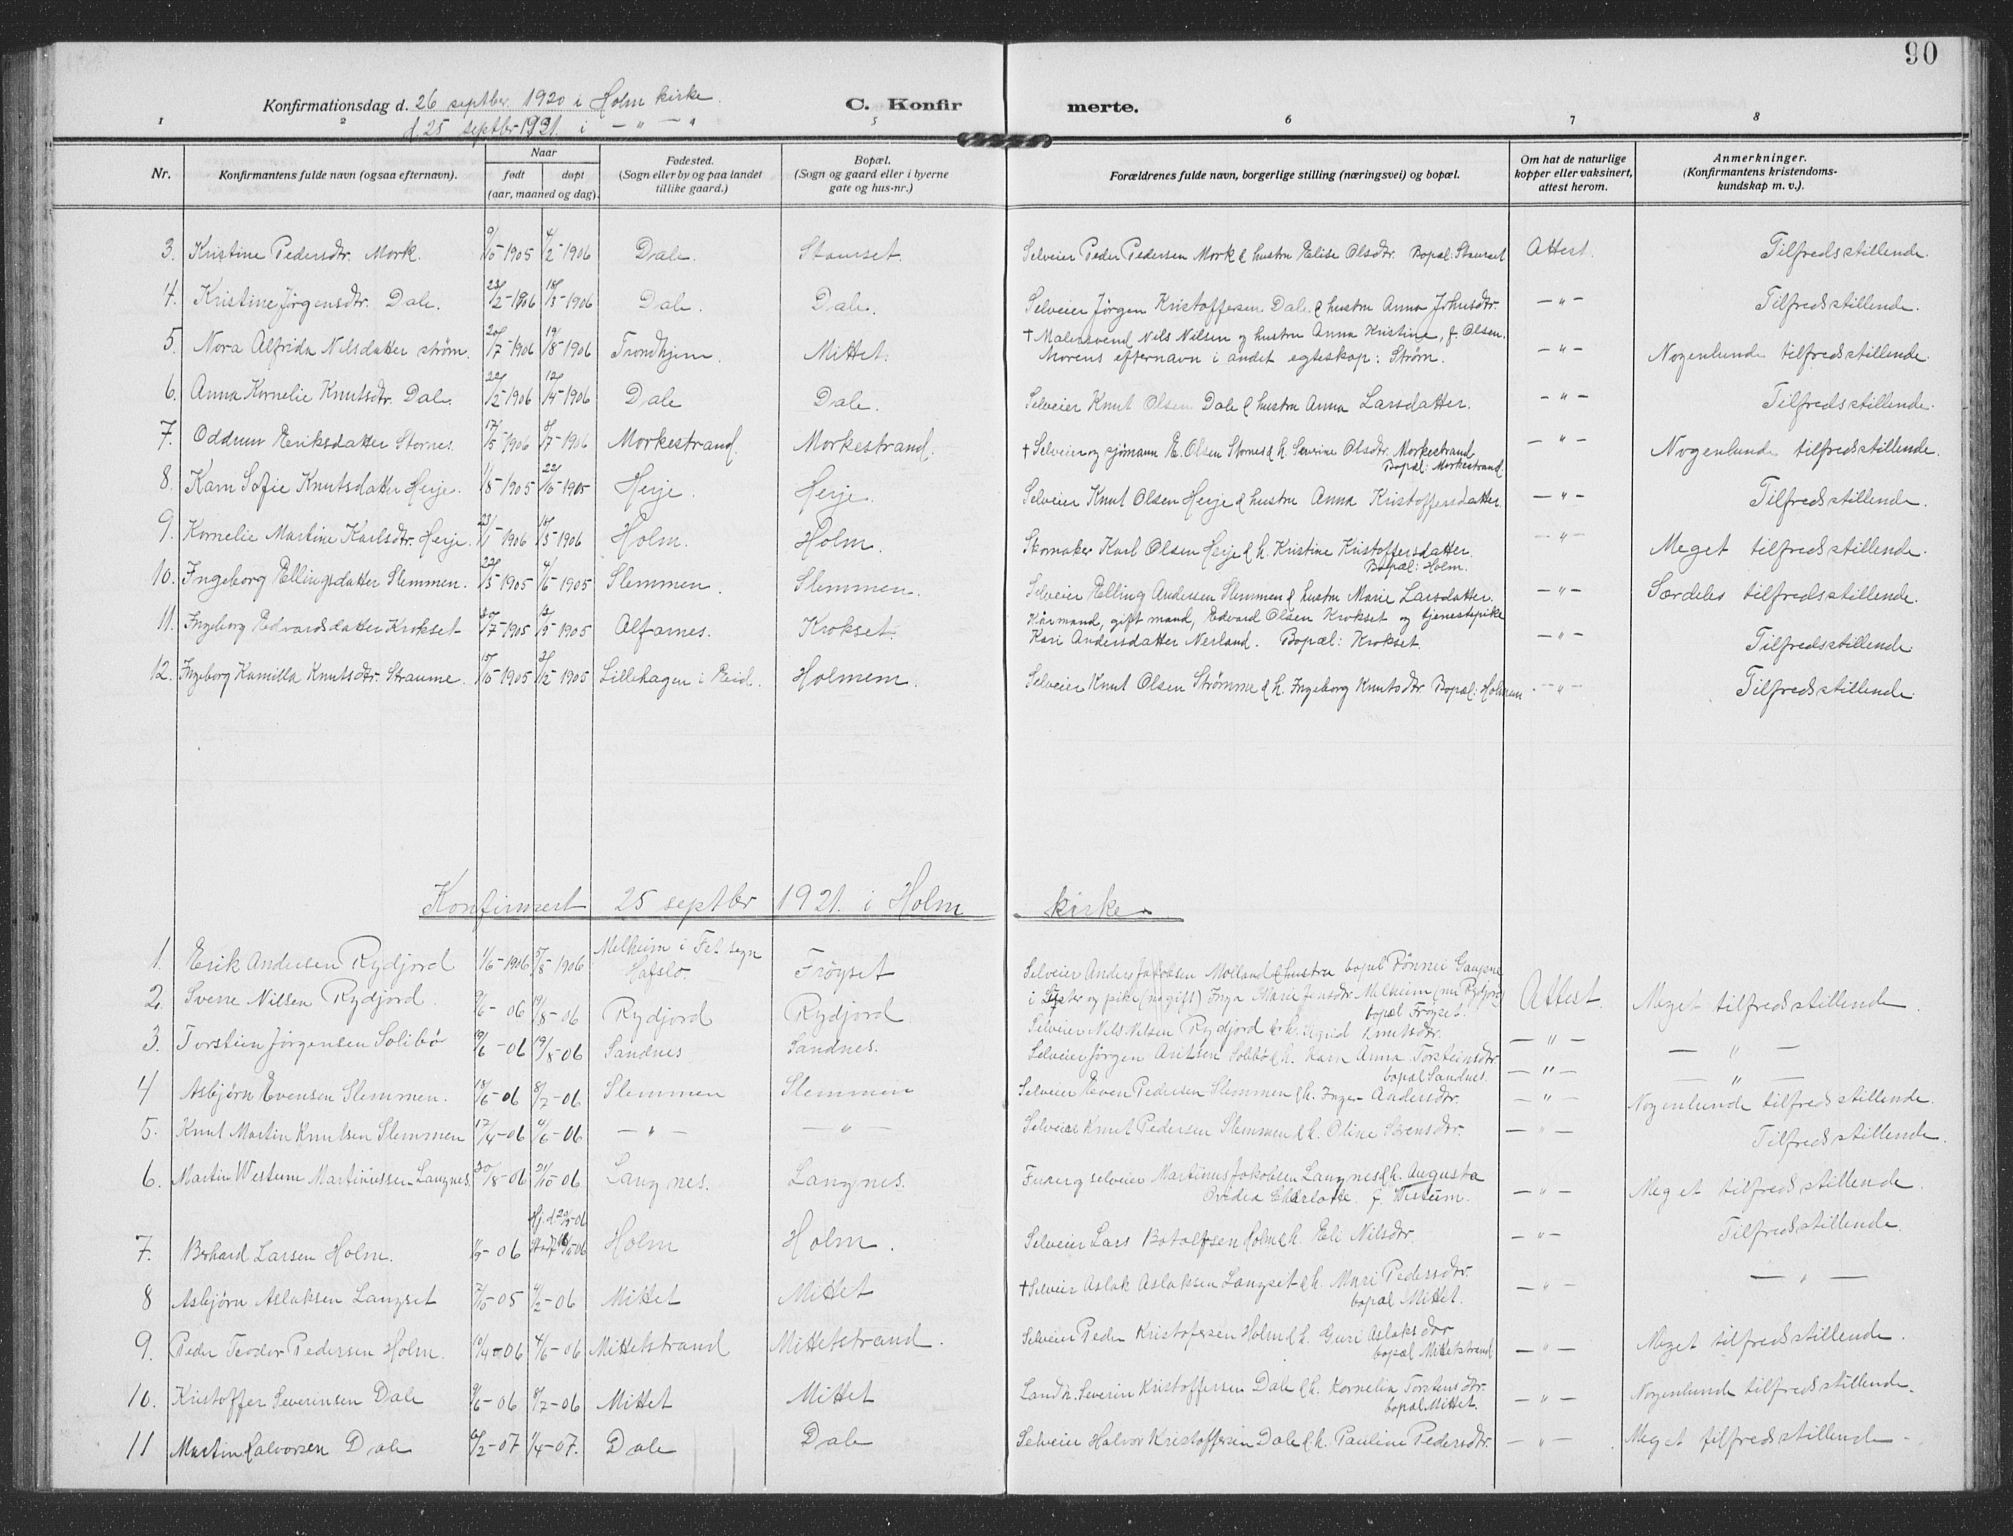 90
Konfirmationsdag d. 26 septbr. 1920 i Holm kirke. C. Konfirmerte.
d. 25 septbr 1921. i — " — "
1 2 5 6 7 8
Nr. Konfirmantens fulde navn (ogsaa efternavn). Naar født døpt (aar, maaned og dag). Fødested. (Sogn eller by og paa landet tillike gaard.) Bopæl. (Sogn og gaard eller i byerne gate og hus-nr.) Forældrenes fulde navn, borgerlige stilling (næringsvei) og bopæl. Om hat de naturlige kopper eller vaksinert, attest herom. Anmerkninger. (Konfirmantens kristendomskundskap m. v.).
3. Kristine Pedersdtr. Mork. 9/10-1905 4/2-1906 Dale. Staurset. Selveier Peder Pedersen Mork & hustru Elise Olsdtr. Bopæl: Staurset Attest. Tilfredsstillende.
4. Kristine Jørgensdtr. Dale. 23/2-1906 18/3-1906 Dale. Dale. Selveier Jørgen Kristoffersen Dale & hustru Anna Johnsdtr. — " — Tilfredsstillende.
5. Nora Alfrida Nilsdatter Strøm. 20/7-1906 19/8-1906 Trondhjem. Mittet. † Malersvend Nils Nilsen og hustru Anna Kristine, f. Olsen.
Morens efternavn i andet egteskap: Strøm. — " — Nogenlunde tilfredsstillende.
6. Anna Kornelie Knutsdtr. Dale. 22/2-1906 12/4-1906 Dale Dale. Selveier Knut Olsen Dale & hustru Anna Larsdatter. — " — Tilfredsstillende.
7. Oddrun Eriksdatter Stornes. 17/5-1906 8/7-1906 Morkestrand. Morkestrand. † Selveier og sjømann E. Olsen Stornes & h. Severine Olsdtr. Morkestrand
Bopæl: Morkestrand. — " — Nogenlunde tilfredsstillende.
8. Karn Sofie Knutsdatter Herje. 1/8-1905 22/10-1905 Herje. Herje. Selveier Knut Olsen Herje & hustru Anna Kristoffersdatter. — " — Tilfredsstillende.
9. Kornelie Martine Karlsdtr. Herje. 23/1-1906 /5-1906 Holm. Holm. Skomaker Karl Olsen Herje & h. Kristine Kristoffersdatter.
Bopæl: Holm. — " — Meget tilfredsstillende.
10. Ingeborg Ellingsdatter Slemmen. 22/5-1905 4/6-1905 Slemmen. Slemmen. Selveier Elling Andersen Slemmen & hustru Marie Larsdatter. — " — Særdeles tilfredsstillende.
11. Ingeborg Edvardsdatter Krokset 30/7-1905 /9-1905 Alfarnes. Krokset. Kårmand, gift mand, Edvard Olsen Krokset og tjenestepike
Kari Andersdatter Nerland. Bopæl: Krokset. — " — Tilfredsstillende.
12. Ingeborg Kamilla Knutsdtr. Straume. 15/10-1905 31/12-1905 Lillehagen i Eid. Holmem. Selveier Knut Olsen Strømme & h. Ingeborg Knutsdtr Bopæl: Holmem — " — Tilfredsstillende.
Konfirmert 25 septbr 1921. i Holm kirke.
1. Erik Andersen Rydjord 1/6-1906 5/8-1906 Melheim i Fet sogn
Hafslo Frøyset Selveier Anders Jakobsen Molland & hustru bopel Rønnei Gaupne
i Luster og pike (nu gift) Inga Marie Jensdtr. Melheim (nu Rydjord)
bopæl Frøyset. Attest. Meget tilfredsstillende
2. Sverre Nilsen Rydjord. 9/6-06 19/8-06 Rydjord Rydjord Selveier Nils Nilsen Rydjord & h. Sigrid Knutsdtr. — " — — " —
3. Torstein Jørgensen Solibø 19/6-06 19/8-06 Sandnes Sandnes. Selveier Jørgen Aritsen Solibø & h. Karn Anna Torsteinsdtr.
bopæl Sandnes. — " — — " —
4 Asbjørn Evensen Slemmen. 18/6-06 8/7-06 Slemmen Slemmen Selveier Even Pedersen Slemmen & h. Inger Andersdtr. — " — Nogenlunde tilfredsstillende.
5. Knut Martin Knutsen Slemmen 17/4-06 4/6-06 — " — — " — Selveier Knut Pedersen Slemmen & h. Oline Sørensdtr. — " — Tilfredsstillende.
6. Martin Westum Martinussen Langnes. 30/8-06 21/10-06 Langnes. Langnes. Selveier Martinus Jakobsen Langnes & h. Augusta
Ovidea Charlotte f. Westum. — " — Meget tilfredsstillende.
7. Berhard Larsen Holm. /9-06 Hj.d. -06
-06 Holm Holm. Selveier Lars Botolfsen Holm & h. Eli Nilsdtr. — " — Tilfredsstillende
8 Asbjørn Aslaksen Langset 7/10-05 4/2-06 Mittet Mittet † Selveier Aslak Aslaksen Langset & h. Mari Pedersdtr.
bopæl Mittet. — " — — " —
9. Peder Teodor Pedersen Holm. 19/4-06 4/6-06 Mittetstrand Mittetstrand. Selveier Peder Kristofersen Holm & h. Guri Aslaksdtr
bopæl Mittetstrand — " — Meget tilfredsstillende.
10. Kristoffer Severinsen Dale 9/6-06 8/7-06 Mittet Mittet Landh. Severin Kristoffersen Dale & h. Kornelia Torstensdtr.
bopæl Mittet. — " — Nogenlunde tilfredsstillende.
11 Martin Halvorsen Dale /2-07 1/4-07. Dale Dale Selveier Halvor Kristoffersen Dale & h. Pauline Pedersdtr. — " — Meget tilfredsstillende.